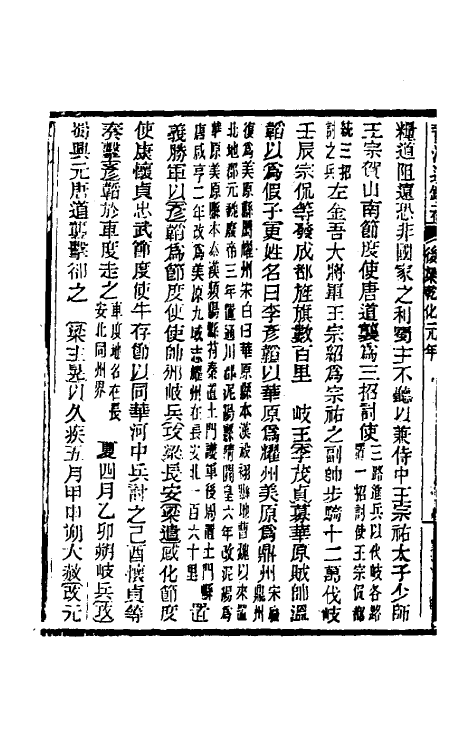 後梁乾化元年
糧道阻遠恐非國家之利蜀主不聽以兼侍中王宗祐太子少師
王宗賀山南節度使唐道襲爲三招討使三路進兵以伐岐各路置一招討使王宗侃都
統三招討之兵左金吾大將軍王宗紹爲宗祐之副帥步騎十二萬伐岐
壬辰宗侃等發成都旌旗數百里 岐王李茂貞募華原賊帥溫
韜以爲假子更姓名曰李彥韜以華原爲耀州美原爲鼎州宋廢鼎州
復爲美原縣屬耀州宋白曰華原縣本漢祋祤縣地曹魏以來置北地郡元魏廢帝三年置通川郡泥陽縣隋開皇六年改泥陽爲
華原美原縣本秦漢頻陽縣苻秦置土門護軍後周置土門縣唐咸亨二年改爲美原九域志耀州在長安北一百六十里置
義勝軍以彥韜爲節度使使帥州岐兵攻梁長安梁遣感化節度
使康懷貞忠武節度使牛存節以同華河中兵討之己酉懷貞等
奏擊彥韜於車度走之車度地名在長安北同州界 夏四月乙卯朔岐兵攻
蜀興元唐道襲擊卻之 梁主晃以久疾五月甲申朔大赦改元